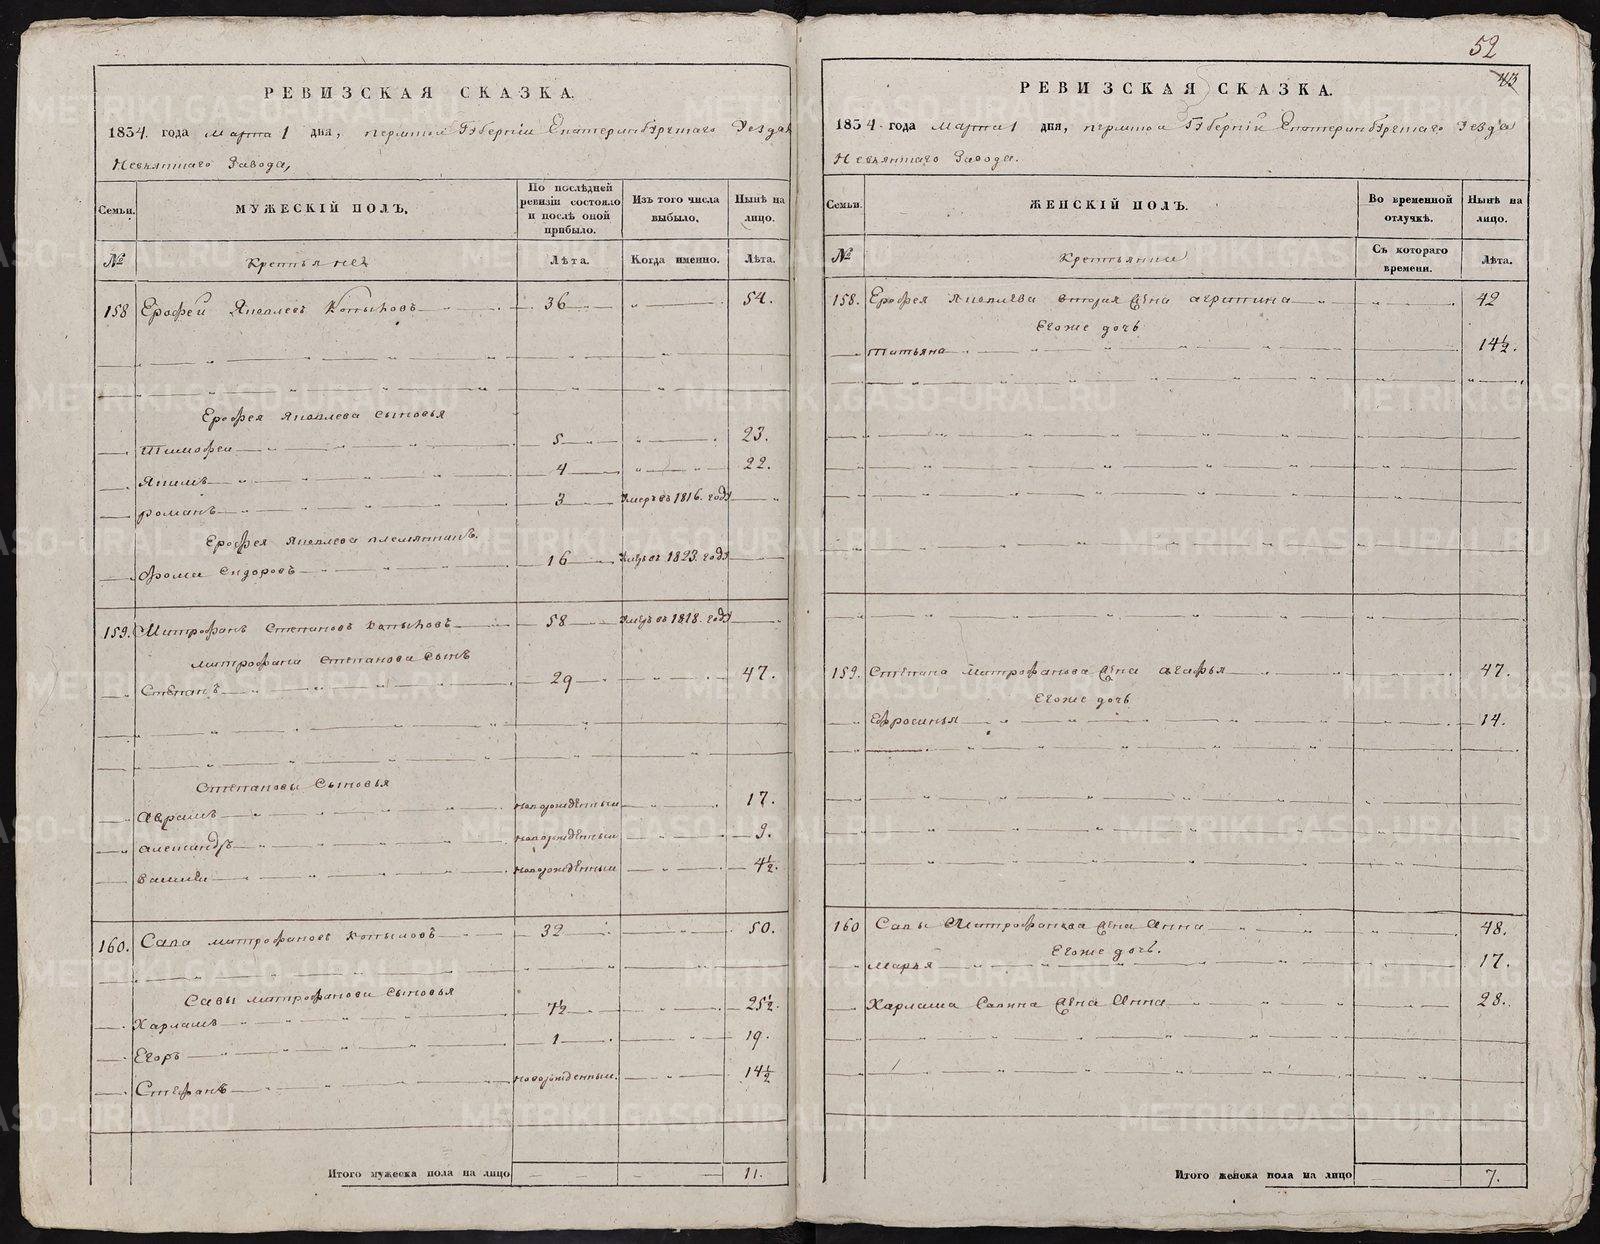 52
РЕВИЗСКАЯ СКАЗКА.
1834. года марта 1 дня, пермской Губерніи Екатеринбургскаго Уезда
Невьянскаго Завода,
Семьи.
МУЖЕСКІЙ ПОЛЪ.
По послѣдней ревизіи состояло и послѣ оной прибыло.
Изъ того числа выбыло.
Нынѣ на лицо.
№
Крестьянех
Лѣта.
Когда именно.
Лѣта.
158 Ерофей Яковлевъ Копыловъ 36 54.
Ерофея Яковлева сыновья
Тимофеи 5 23.
Якимъ 4 22.
романъ 3 Умеръ въ 1816. году
Ерофея Яковлева племянникъ.
Фома Сидоровъ 16 въ 1823. году
159. Митрофанъ Степановъ Копыловъ 58 въ 1818. году
Митрофана Степанова Сынъ
Степанъ 29 47.
Степановы Сыновья
Аврамъ новорожденныи 17.
Александръ новорожденныи 9.
Василеи новорожденныи 4½.
160. Сава митрофановъ Копыловъ 32 50.
Савы митрофанова Сыновья
Харламъ 7½ 25½.
Егоръ 1 19.
Стефанъ новорожденныи. 14½
Итого мужеска пола на лицо 11.
43
РЕВИЗСКАЯ СКАЗКА.
1834. года марта 1 дня, пермской Губерніи Екатеринбургскаго Уезда
Невьянскаго Завода.
Семьи.
ЖЕНСКІЙ ПОЛЪ.
Во временной отлучкѣ.
Нынѣ на лицо.
№
Крестьянки
Съ котораго времени.
Лѣта.
158. Ерофея Яковлева вторая Жена аграпина 42
Егоже дочь
татьяна 14½.
159. Степана митрофанова Жена агафья 47.
Егоже дочь
Ефросинья 14.
160 Савы Митрофанова Жена Анна 48.
Егоже дочь.
Марья 17.
Харлама Савина Жена Анна 28.
Итого женска пола на лицо 7.
METRIKI.GASO-URAL.RU